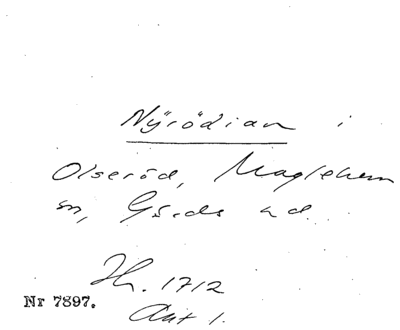 Nÿrödian i
Olseröd, Maglehem
sn, Gärds hd.
Hh. 1712
Akt 1.
Nr 7897.